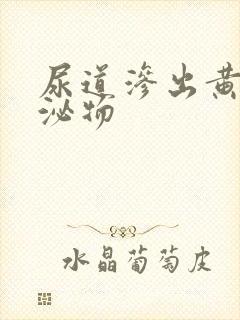 尿道渗出黄
泌物
水晶葡萄皮